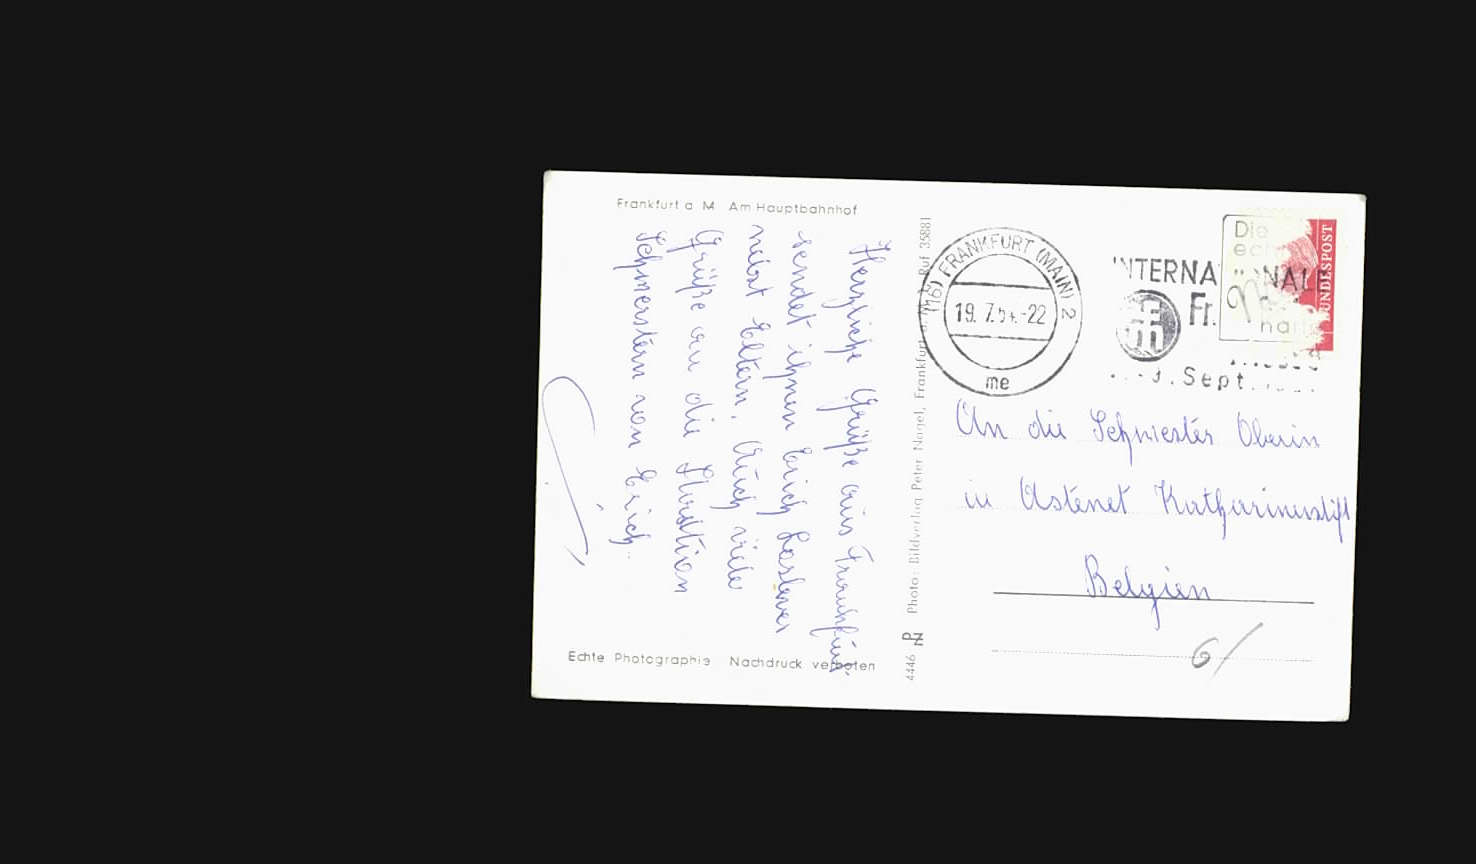 Frankfurt a. M. Am Hauptbahnhof
Herzliche Grüße aus Frankfurt
sendet ihnen Erich
nebst Eltern. Auch viele
Grüße an die
Schwestern von Erich.
Echte Photographie Nachdruck verboten
4446 PN Photo: Bildverlag Peter Nagel, Frankfurt a. M. Ruf 35881
(16) FRANKFURT (MAIN) 2
19. 7.54.-22
me
INTERNATIONALE
Sept.
Die
BUNDESPOST
An die Schwester Oberin
in Astenet Katharinenstift
Belgien
6/